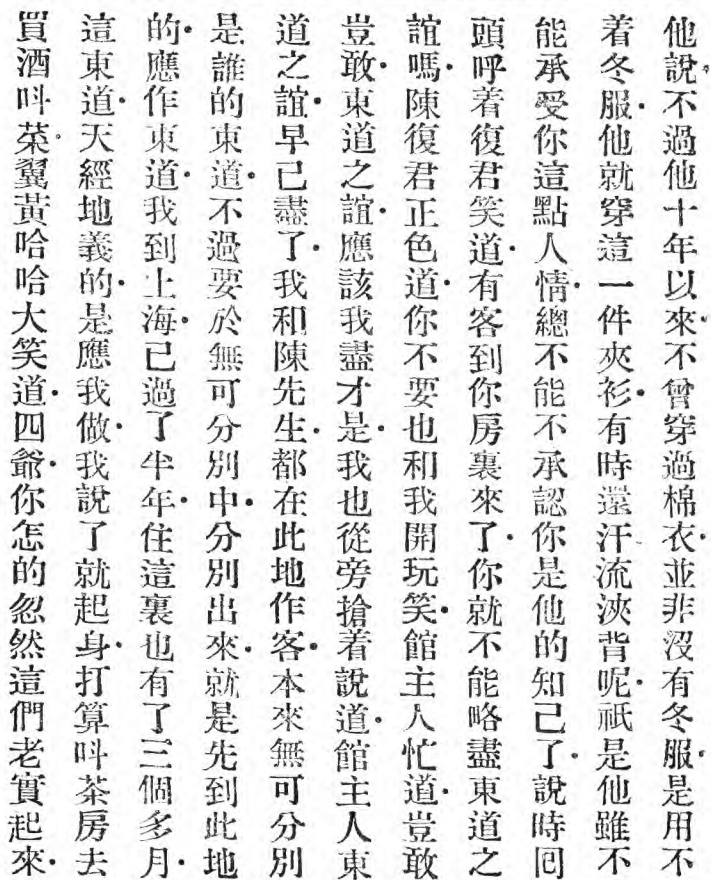 他說。不過他十年以來不曾穿過棉衣。並非沒有冬服。是用不
着冬服。他就穿這一件夾衫。有時還汗流浹背呢。祇是他雖不
能承受你這點人情。總不能不承認你是他的知己了。說時囘
頭呼着復君笑道。有客到你房裏來了。你就不能略盡東道之
誼嗎。陳復君正色道。你不要也和我開玩笑。館主人忙道。豈敢
豈敢。東道之誼。應該我盡才是。我也從旁搶着說道。館主人東
道之誼。早已盡了。我和陳先生。都在此地作客。本來無可分別
是誰的東道。不過要於無可分別中。分別出來。就是先到此地
的。應作東道。我到上海。已過了半年。住這裏也有了三個多月。
這東道。天經地義的。是應我做。我說了就起身。打算呌茶房去
買酒呌菜。翼黃哈哈大笑道。四爺。你怎的忽然這們老實起來。